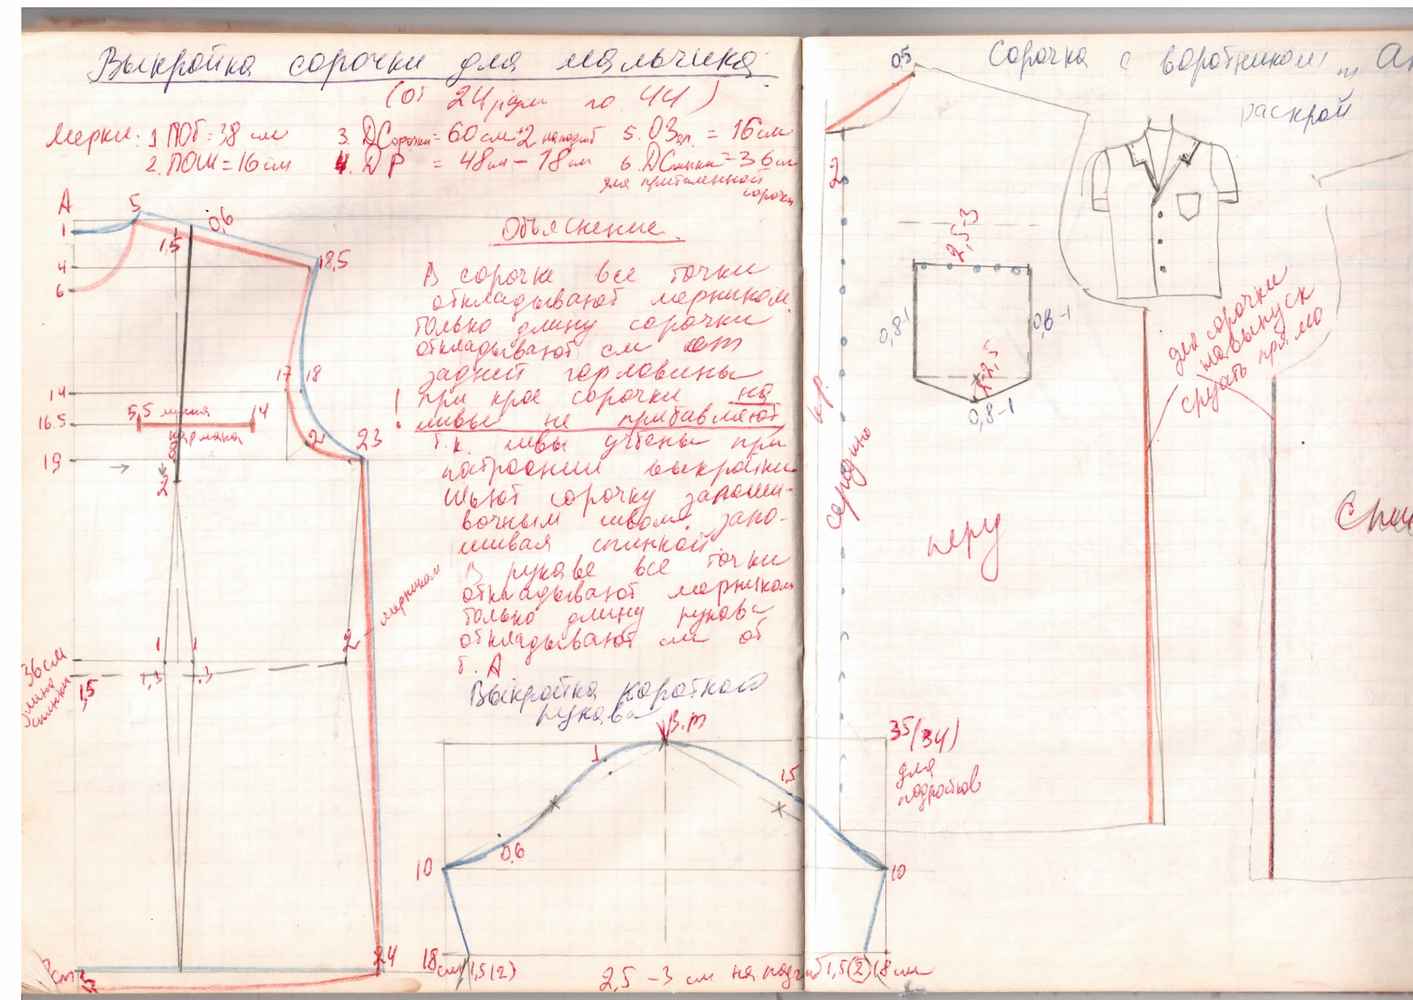 Выкройка сорочки для мальчика
(от 24 разм по 44)
Мерки: 1. ПОГ = 38 см
2. ПОШ = 16 см
3. ДСорочки = 60 см + 2 на подгиб
4. ДР = 48 см - 18 см
5. ОЗап. = 16 см
6. ДСпинки = 36 см
для приталенной
сорочки
А
5
0,6
1
1,5
18,5
4
6
17 18
14
16.5
5,5 линия 14
кармана
2
23
19
2
меркиком
1 1
2
36 см
длина
спинки
1,5
1,3 1,3
24
Объяснение.
В сорочке все точки
откладывают мерником
только длину сорочки
откладывают см от
задней горловины
! При крое сорочки на
швы не прибавляют
т.к. швы учтены при
построении выкройки
Шьют сорочку запоши-
вочным швом, запо-
шивая спинкой.
В рукаве все точки
откладывают мерником
только длину рукава
откладывают см от
т. А
Выкройка короткого
рукава
В.т
1
1,5
0,6
10
10
35/(34)
для
подростков
18 см 1,5(2)
2,5 - 3 см на подгиб 1,5(2) 18 см
Сорочка с воротником
раскрой
0,5
2
2,5-3
0,8-1
0,8-1
2-2,5
0,8-1
для сорочки
на выпуск
срезать прямо
середина
пер